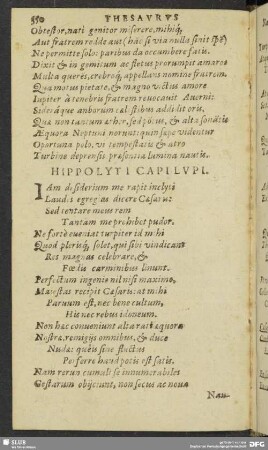 550 THESAVRVS
Obtestor, nati genitor miserere, mihiq;
Aut fratrem redde aut (hac si via nulla sinit spē)
Ne permitte solo: paribus da occumbere fatis.
Dixit & in gemitum ac fletus prorumpit amaros
Multa querēs, crebroq; appellans nomine fratrem.
Qua motus pietate, & magno victus amore
Iupiter à tenebris fratrem reuocauit Auerni:
Sideraque amborum cælestibus addidit oris,
Quæ non tantum arbor, sed pinus, & alta
Æquora Neptuni norunt: quin sæpe videntur
Oportuna polo, vi tempestatis & atro
Turbine deprensis præsentia lumina nautis.
HIPPOLYTI CAPILVPI.
IAm desiderium me rapit inclyti
Laudes egregias dicere Cæsaris:
Sed tentare meus rem
Tantam me prohibet pudor.
Ne forte eueniat turpiter id mihi
Quod plerisq; solet, qui sibi vindicant
Res magnas celebrare, &
Fœdis carminibus linunt.
Perfectum ingenij nil nisi maximi
Maiestas recipit Cæsaris: at mihi
Paruum est, nec bene cultum,
His nec rebus idoneum.
Non hæc conueniunt alta rati æquora
Nostræ, remigijs omnibus, & duce
Nudæ: quæis sine fluctus
Perferre haud potis est satis.
Nam rerum cumuli se innumerabiles
Gestarum obijciunt, non secus ac noua
Nau-